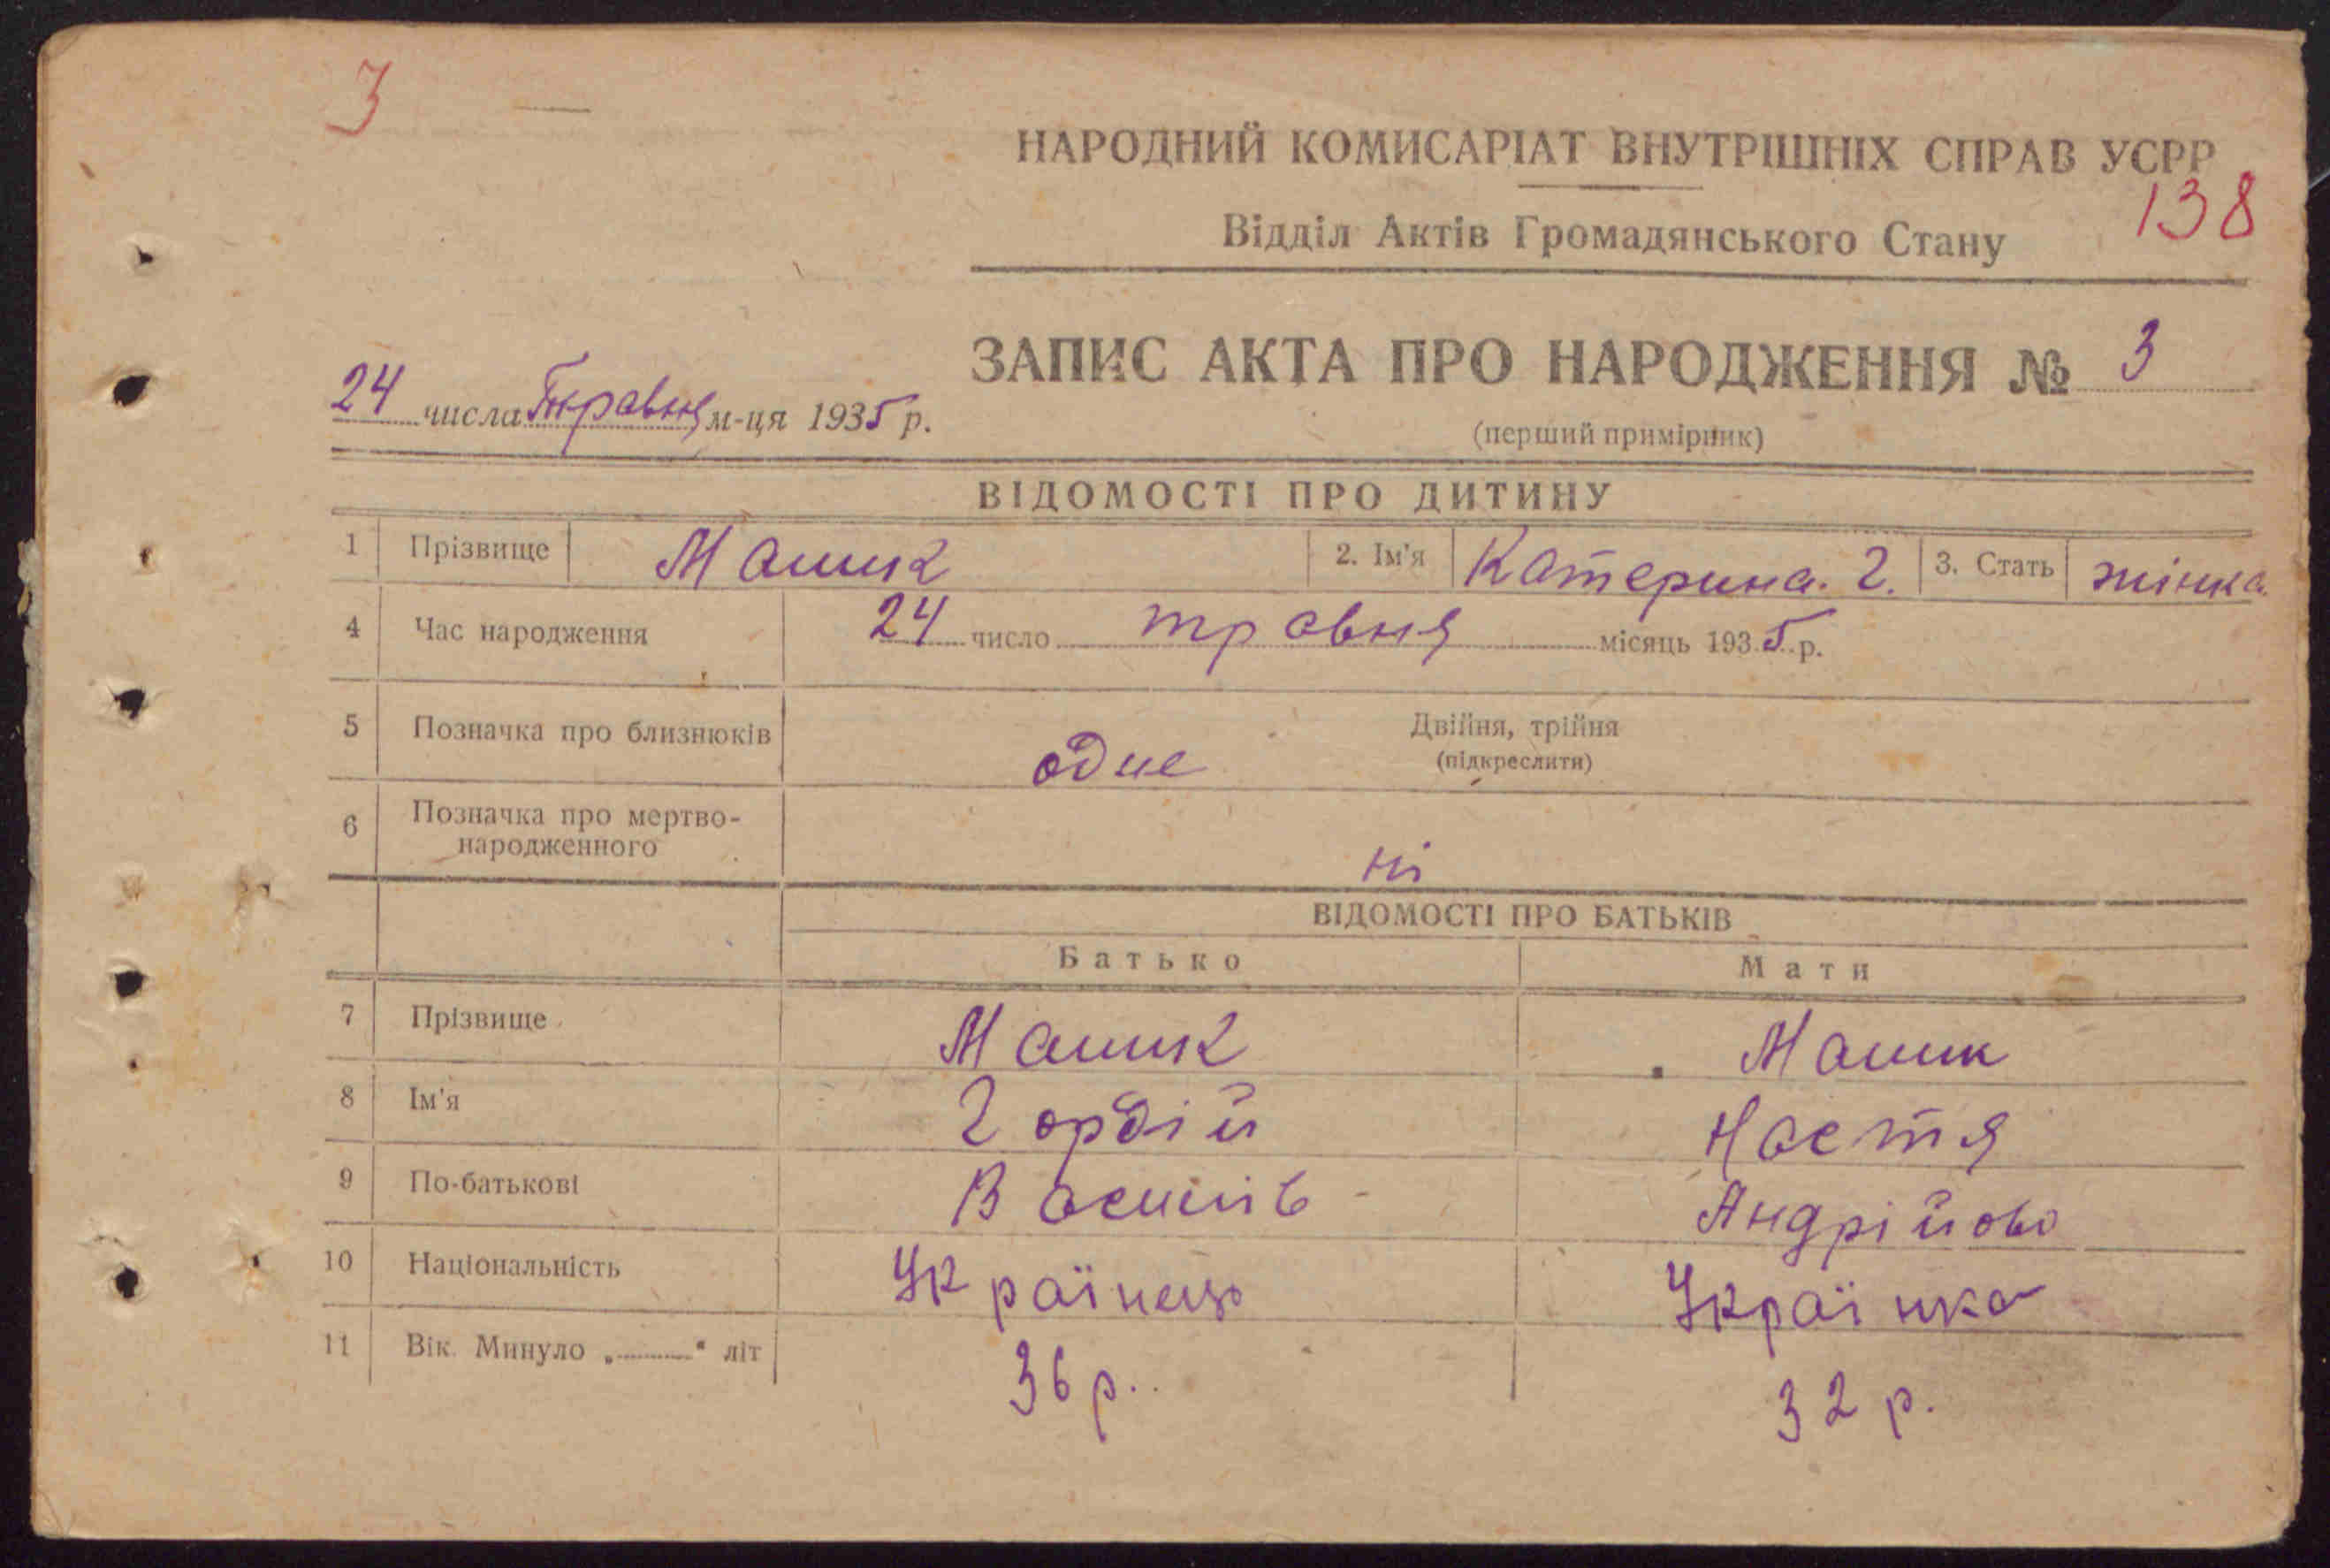 3
НАРОДНИЙ КОМИСАРІАТ ВНУТРІШНІХ СПРАВ УСРР
138
Відділ Актів Громадянського Стану
ЗАПИС АКТА ПРО НАРОДЖЕННЯ № 3
24 числа Травня м-ця 1935 р.
(перший примірник)
ВІДОМОСТІ ПРО ДИТИНУ
1 Прізвище Машик 2. Ім'я Катерина. Г. 3. Стать жінка
4 Час народження 24 число травня місяць 1935 р.
5 Позначка про близнюків одне Двійня, трійня
(підкреслити)
6 Позначка про мертво-
народженного ні
ВІДОМОСТІ ПРО БАТЬКІВ
Батько Мати
7 Прізвище Машик Машик
8 Ім'я Гордій Настя
9 По-батькові Василів Андрійова
10 Національність Українець Українка
11 Вік. Минуло „ “ літ 36 р. 32 р.